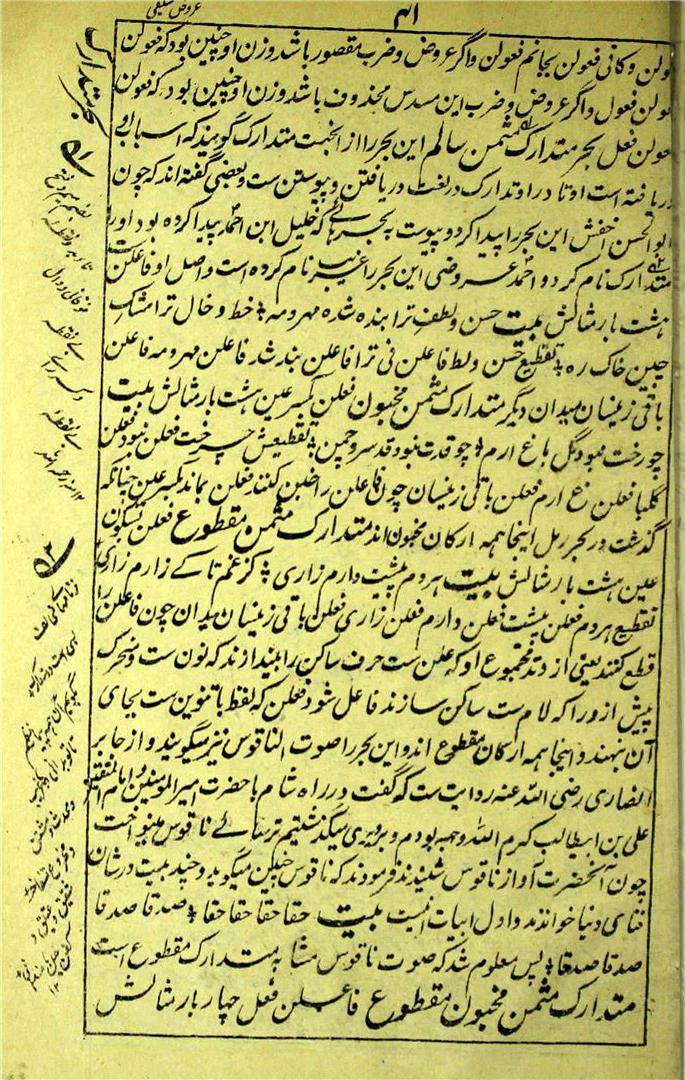 ۴۱
عروض سیفی
فعولن و کانی فعولن بجانم فعولن و اگر عروض و ضرب مقصور باشد وزن او چنین بود که فعولن
فعولن فعول و اگر عروض و ضرب این مسدس محذوف باشد وزن او چنین بود که فعولن
فعولن فعل بحر متدارک مثمن سالم این بحر را از انجهت متدارک گویند که اسباب او
دریافته است اوتاد را و تدارک در لغت دریافتن و پیوستن ست و بعضی گفته اند که چون
ابو الحسن اخفش این بحر را پیدا کرد و پیوست به بحرهائے که خلیل ابن احمد پیدا کرده بود او را
متدارک نام کرد و احمد عروضی این بحر را غریب نام کرده است و اصل او فاعلن
هشت بار مثالش بیت حسن و لطف ترا بنده شد مهر و مه خط و خال ترا مشک
چین خاک ره تقطیع حسن و لط فاعلن فی ترا فاعلن بند شد فاعلن مهر و مه فاعلن
باقی زینسان میدان دیگر متدارک مثمن مخبون فعلن بکسر عین هشت بار مثالش بیت
چو رخت نبود گل باغ ارم چو قدت نبود قد سرو چمن تقطیعش چو رخت فعلن نبود فعلن
گل با فعلن غ ارم فعلن باقی زینسان چون فاعلن را خبن کنند فعلن بماند بکسر عین چنانکه
گذشت در بحر رمل اینجا همه ارکان مخبون اند متدارک مثمن مقطوع فعلن بسکون
عین هشت بار مثالش بیت هر دم پیشت دارم زاری کز غم تا کے زارم زاری
تقطیع هر دم فعلن پیشت فعلن دارم فعلن زاری فعلن باقی زینسان میدان چون فاعلن را
قطع کنند یعنی از وتد مجموع او که علن ست حرف ساکن را بیندازند که نون ست و متحرک
پیش از و را که لام ست ساکن سازند فاعل شود فعلن که لفظ با تنوین ست بجای
آن نهند و اینجا همه ارکان مقطوع اند و این بحر را صوت الناقوس نیز میگویند و از جابر
انصاری رضی الله عنه روایت ست که گفت در راه شام با حضرت امیر المومنین و امام المتقین
علی بن ابیطالب کرم الله وجهه بودم و بدیری میگذشتیم ترسائے ناقوس مینواخت
چون آنحضرت آواز ناقوس شنیدند فرمودند که ناقوس چنین میگوید و چند بیت در شان
فنای دنیا خواندند و اول ابیات اینست بیت حقا حقا حقا حقا صدقا صدقا
صدقا صدقا پس معلوم شد که صوت ناقوس مشابه متدارک مقطوع است
متدارک مثمن مخبون مقطوع فاعلن فعل چهار بار مثالش
بحر متدارک